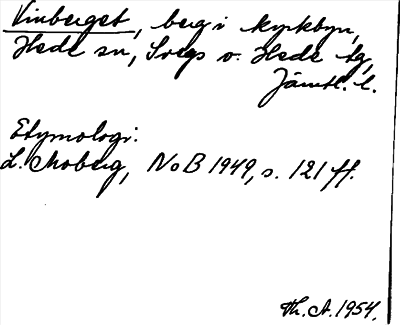 Vinberget, berg i kyrkbyn,
Hede sn, Svegs o. Hede tg,
Jämtl. l.
Etymologi:
L. Moberg, NoB 1949, s. 121 ff.
Th. A. 1954.